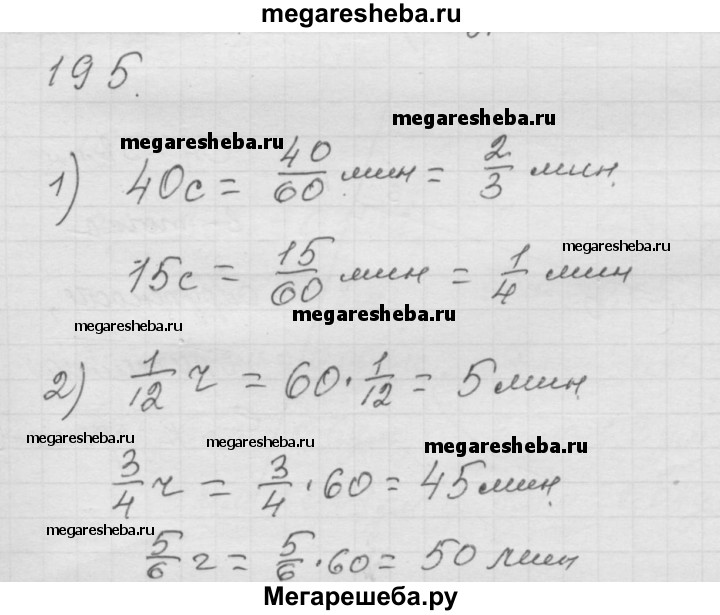 megaresheba.ru
195.
megaresheba.ru
megaresheba.ru
1) 40с = 40/60 мин = 2/3 мин
megaresheba.ru
15с = 15/60 мин = 1/4 мин
megaresheba.ru
megaresheba.ru
2) 1/12 ч = 60 · 1/12 = 5 мин
megaresheba.ru
megaresheba.ru
megaresheba.ru
3/4 ч = 3/4 · 60 = 45 мин
megaresheba.ru
5/6 ч = 5/6 · 60 = 50 мин
Мегарешеба.ру